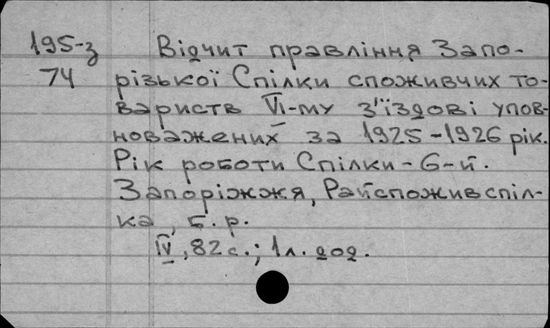 195-з Відчит правління Запо-
74 різької Спілки споживчих то-
вариств VI-му з'їздові упов-
новажених за 1925-1926 рік.
Рік роботи Спілки - 6-й.
Запоріжжя, Райспоживспіл-
ка, б. р.
IV, 82 с.; 1 л. дод.